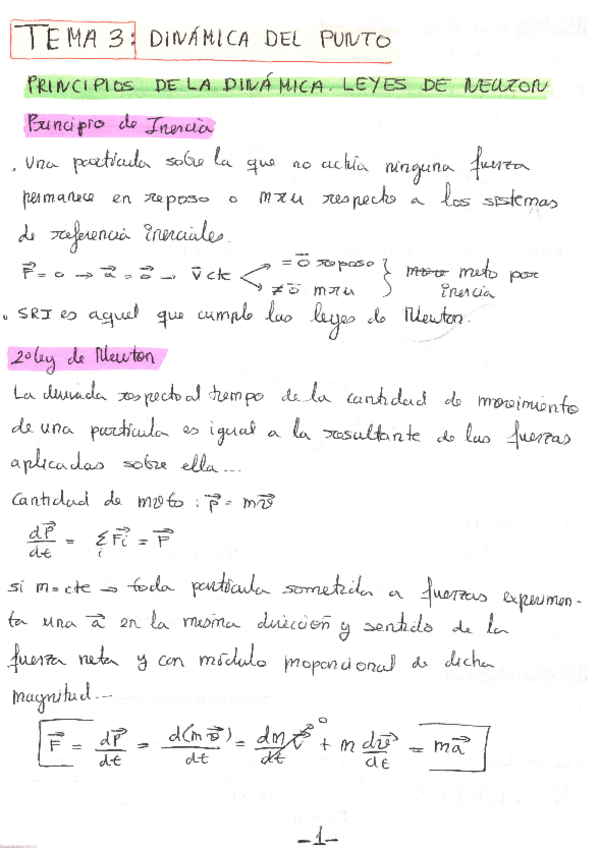 TEMA 3: DINÁMICA DEL PUNTO
PRINCIPIOS DE LA DINÁMICA. LEYES DE NEWTON
Principio de Inercia
. Una partícula sobre la que no actúa ninguna fuerza
permanece en reposo o mru respecto a los sistemas
de referencia inerciales.
F⃗ = 0 → a⃗ = 0⃗ → v⃗ cte < = 0⃗ reposo } mvto por
≠ 0⃗ mru inercia
. SRI es aquel que cumple las leyes de Newton.
2º ley de Newton
La derivada respecto al tiempo de la cantidad de movimiento
de una partícula es igual a la resultante de las fuerzas
aplicadas sobre ella...
Cantidad de mvto : p⃗ = mv⃗
dp⃗/dt = Σᵢ F⃗i = F⃗
si m = cte → toda partícula sometida a fuerzas experimen-
ta una a⃗ en la misma dirección y sentido de la
fuerza neta y con módulo proporcional de dicha
magnitud...
F⃗ = dp⃗/dt = d(mv⃗)/dt = dm/dt v⃗ ⁰ + m dv⃗/dt = ma⃗
-1-